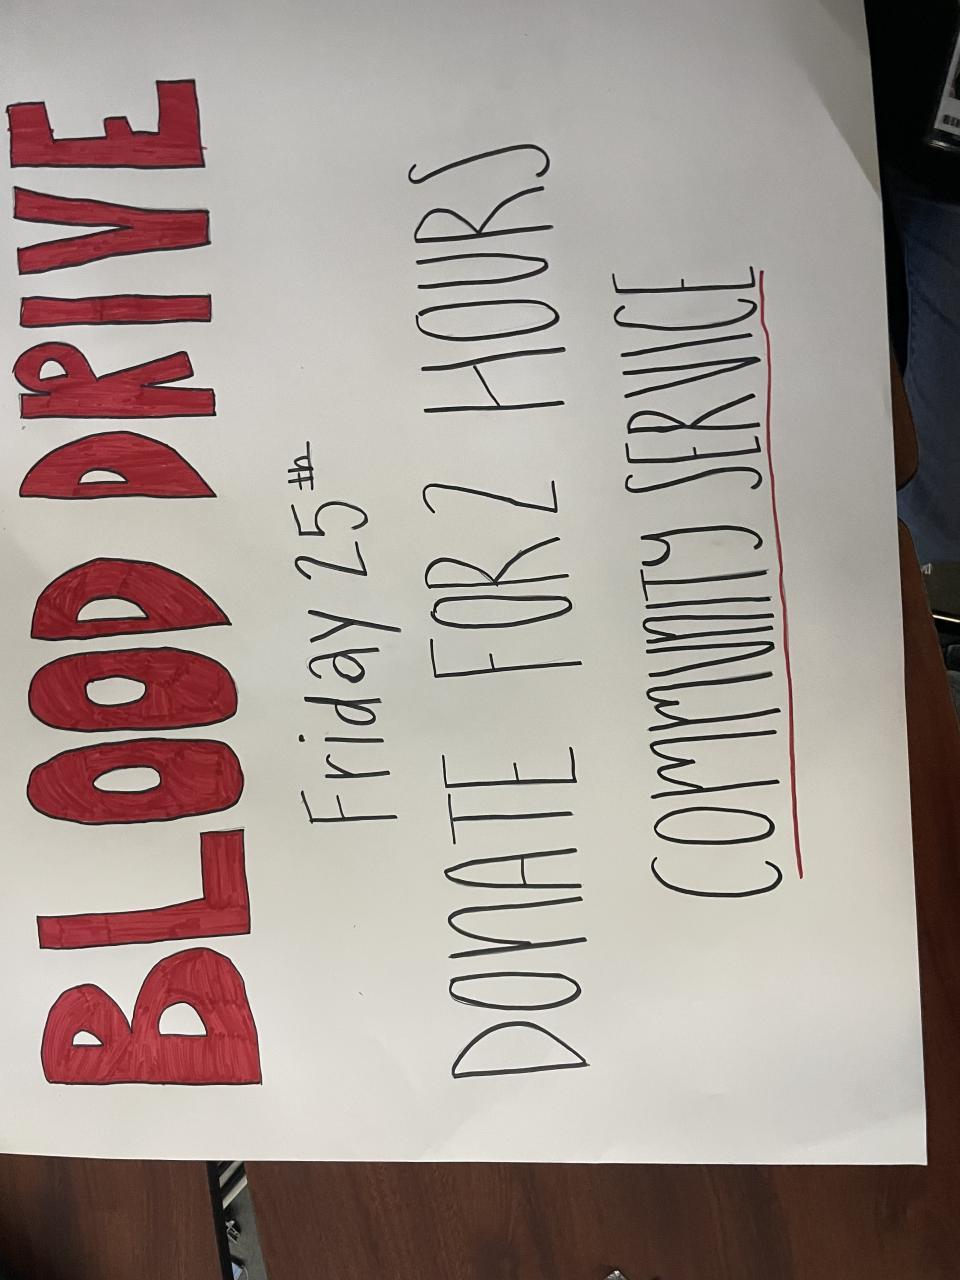 BLOOD DRIVE
Friday 25th
DONATE FOR 2 HOURS
COMMUNITY SERVICE